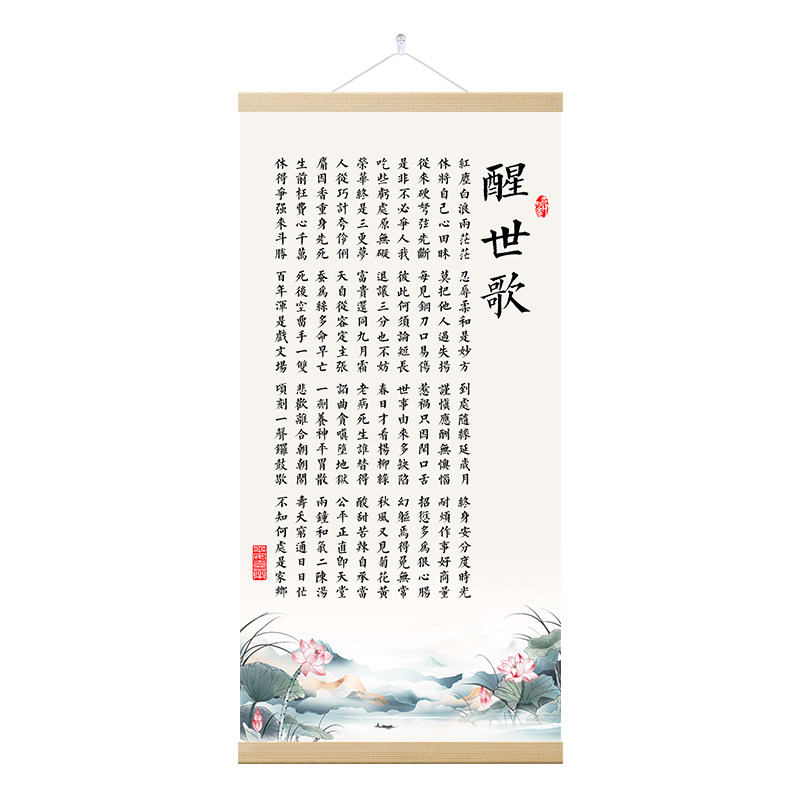 醒世歌
紅塵白浪兩茫茫 忍辱柔和是妙方 到處隨緣延歲月 終身安分度時光
休將自己心田昧 莫把他人過失揚 謹慎應酬無懊惱 耐煩作事好商量
從來硬弩弦先斷 每見鋼刀口易傷 惹禍只因閑口舌 招愆多爲狠心腸
是非不必爭人我 彼此何須論短長 世事由來多缺陷 幻軀焉得免無常
吃些虧處原無礙 退讓三分也不妨 春日才看楊柳綠 秋風又見菊花黃
榮華終是三更夢 富貴還同九月霜 老病死生誰替得 酸甜苦辣自承當
人從巧計夸伶俐 天自從容定主張 諂曲貪嗔墮地獄 公平正直即天堂
麝因香重身先死 蠶爲絲多命早亡 一劑養神平胃散 兩鐘和氣二陳湯
生前枉費心千萬 死後空留手一雙 悲歡離合朝朝鬧 壽夭窮通日日忙
休得爭强來斗勝 百年渾是戲文場 頃刻一聲鑼鼓歇 不知何處是家鄉